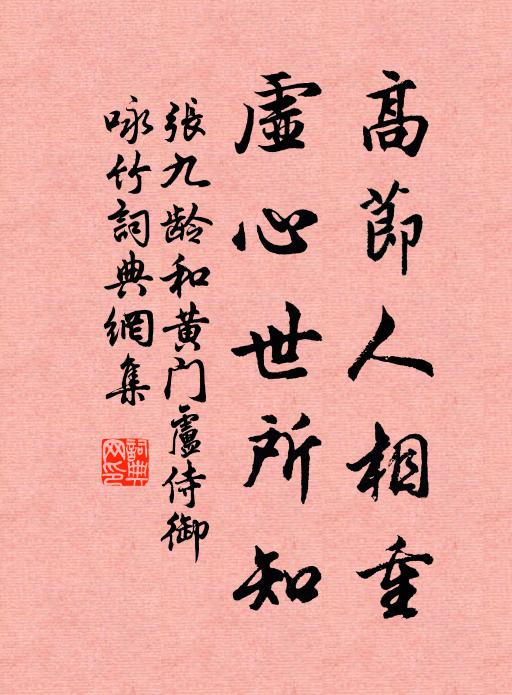 高節人相重
虛心世所知
張九齡和黄门盧侍御
咏竹詞典網集
詞典网印